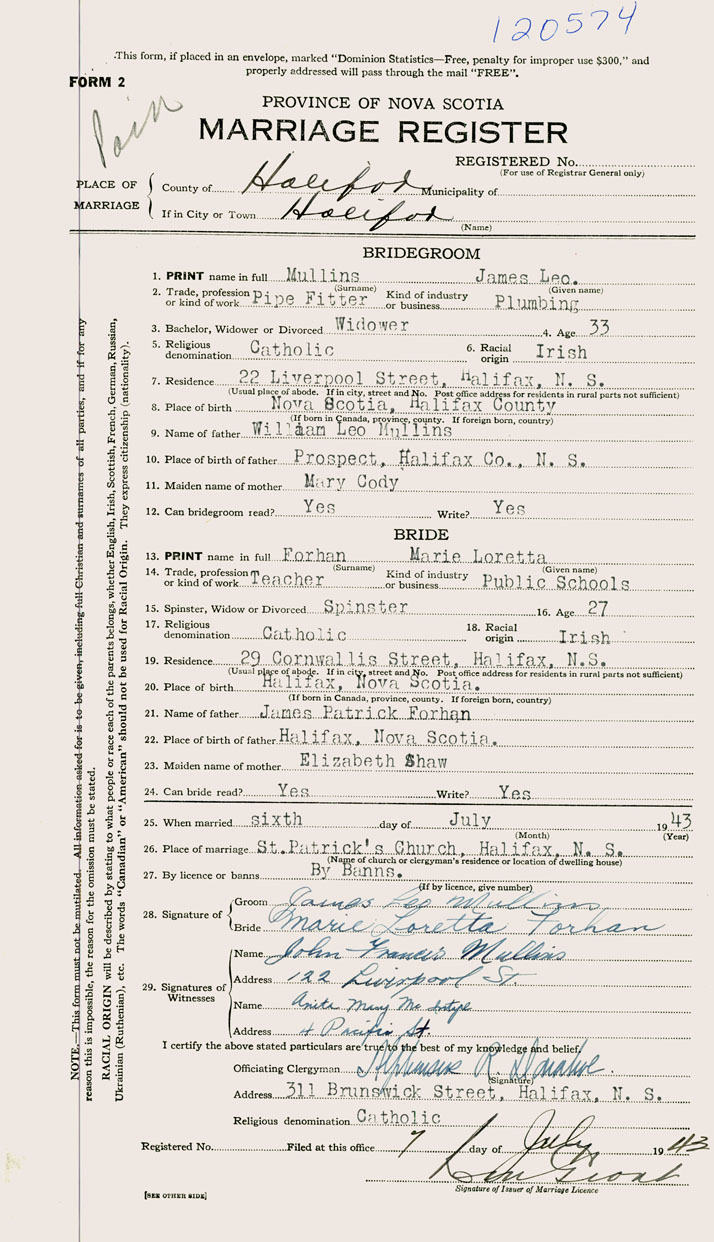 120574
This form, if placed in an envelope, marked "Dominion Statistics—Free, penalty for improper use $300," and
properly addressed will pass through the mail "FREE".
FORM 2
Paid
PROVINCE OF NOVA SCOTIA
MARRIAGE REGISTER
REGISTERED No.
(For use of Registrar General only)
PLACE OF MARRIAGE
County of Halifax Municipality of
If in City or Town Halifax
(Name)
BRIDEGROOM
1. PRINT name in full Mullins James Leo.
(Surname) (Given name)
2. Trade, profession or kind of work Pipe Fitter Kind of industry or business Plumbing
3. Bachelor, Widower or Divorced Widower 4. Age 33
5. Religious denomination Catholic 6. Racial origin Irish
7. Residence 22 Liverpool Street, Halifax, N. S.
(Usual place of abode. If in city, street and No. Post office address for residents in rural parts not sufficient)
8. Place of birth Nova Scotia, Halifax County
(If born in Canada, province, county. If foreign born, country)
9. Name of father William Leo Mullins
10. Place of birth of father Prospect, Halifax Co., N. S.
11. Maiden name of mother Mary Cody
12. Can bridegroom read? Yes Write? Yes
BRIDE
13. PRINT name in full Forhan Marie Loretta
(Surname) (Given name)
14. Trade, profession or kind of work Teacher Kind of industry or business Public Schools
15. Spinster, Widow or Divorced Spinster 16. Age 27
17. Religious denomination Catholic 18. Racial origin Irish
19. Residence 29 Cornwallis Street, Halifax, N.S.
(Usual place of abode. If in city, street and No. Post office address for residents in rural parts not sufficient)
20. Place of birth Halifax, Nova Scotia.
(If born in Canada, province, county. If foreign born, country)
21. Name of father James Patrick Forhan
22. Place of birth of father Halifax, Nova Scotia.
23. Maiden name of mother Elizabeth Shaw
24. Can bride read? Yes Write? Yes
25. When married sixth day of July 1943
(Month) (Year)
26. Place of marriage St.Patrick's Church, Halifax, N. S.
(Name of church or clergyman's residence or location of dwelling house)
27. By licence or banns By Banns.
(If by licence, give number)
28. Signature of
Groom James Leo Mullins
Bride Marie Loretta Forhan
29. Signatures of Witnesses
Name John Francis Mullins
Address 122 Liverpool St.
Name Anita Mary McIntyre
Address 4 Pacific St.
I certify the above stated particulars are true to the best of my knowledge and belief.
Officiating Clergyman R.
(Signature)
Address 311 Brunswick Street, Halifax, N. S.
Religious denomination Catholic
Registered No. Filed at this office 7 day of July 1943
Signature of Issuer of Marriage Licence
[SEE OTHER SIDE]
NOTE.—This form must not be mutilated. All information asked for is to be given, including full Christian and surnames of all parties, and if for any
reason this is impossible, the reason for the omission must be stated.
RACIAL ORIGIN will be described by stating to what people or race each of the parents belongs, whether English, Irish, Scottish, French, German, Russian,
Ukrainian (Ruthenian), etc. The words "Canadian" or "American" should not be used for Racial Origin. They express citizenship (nationality).